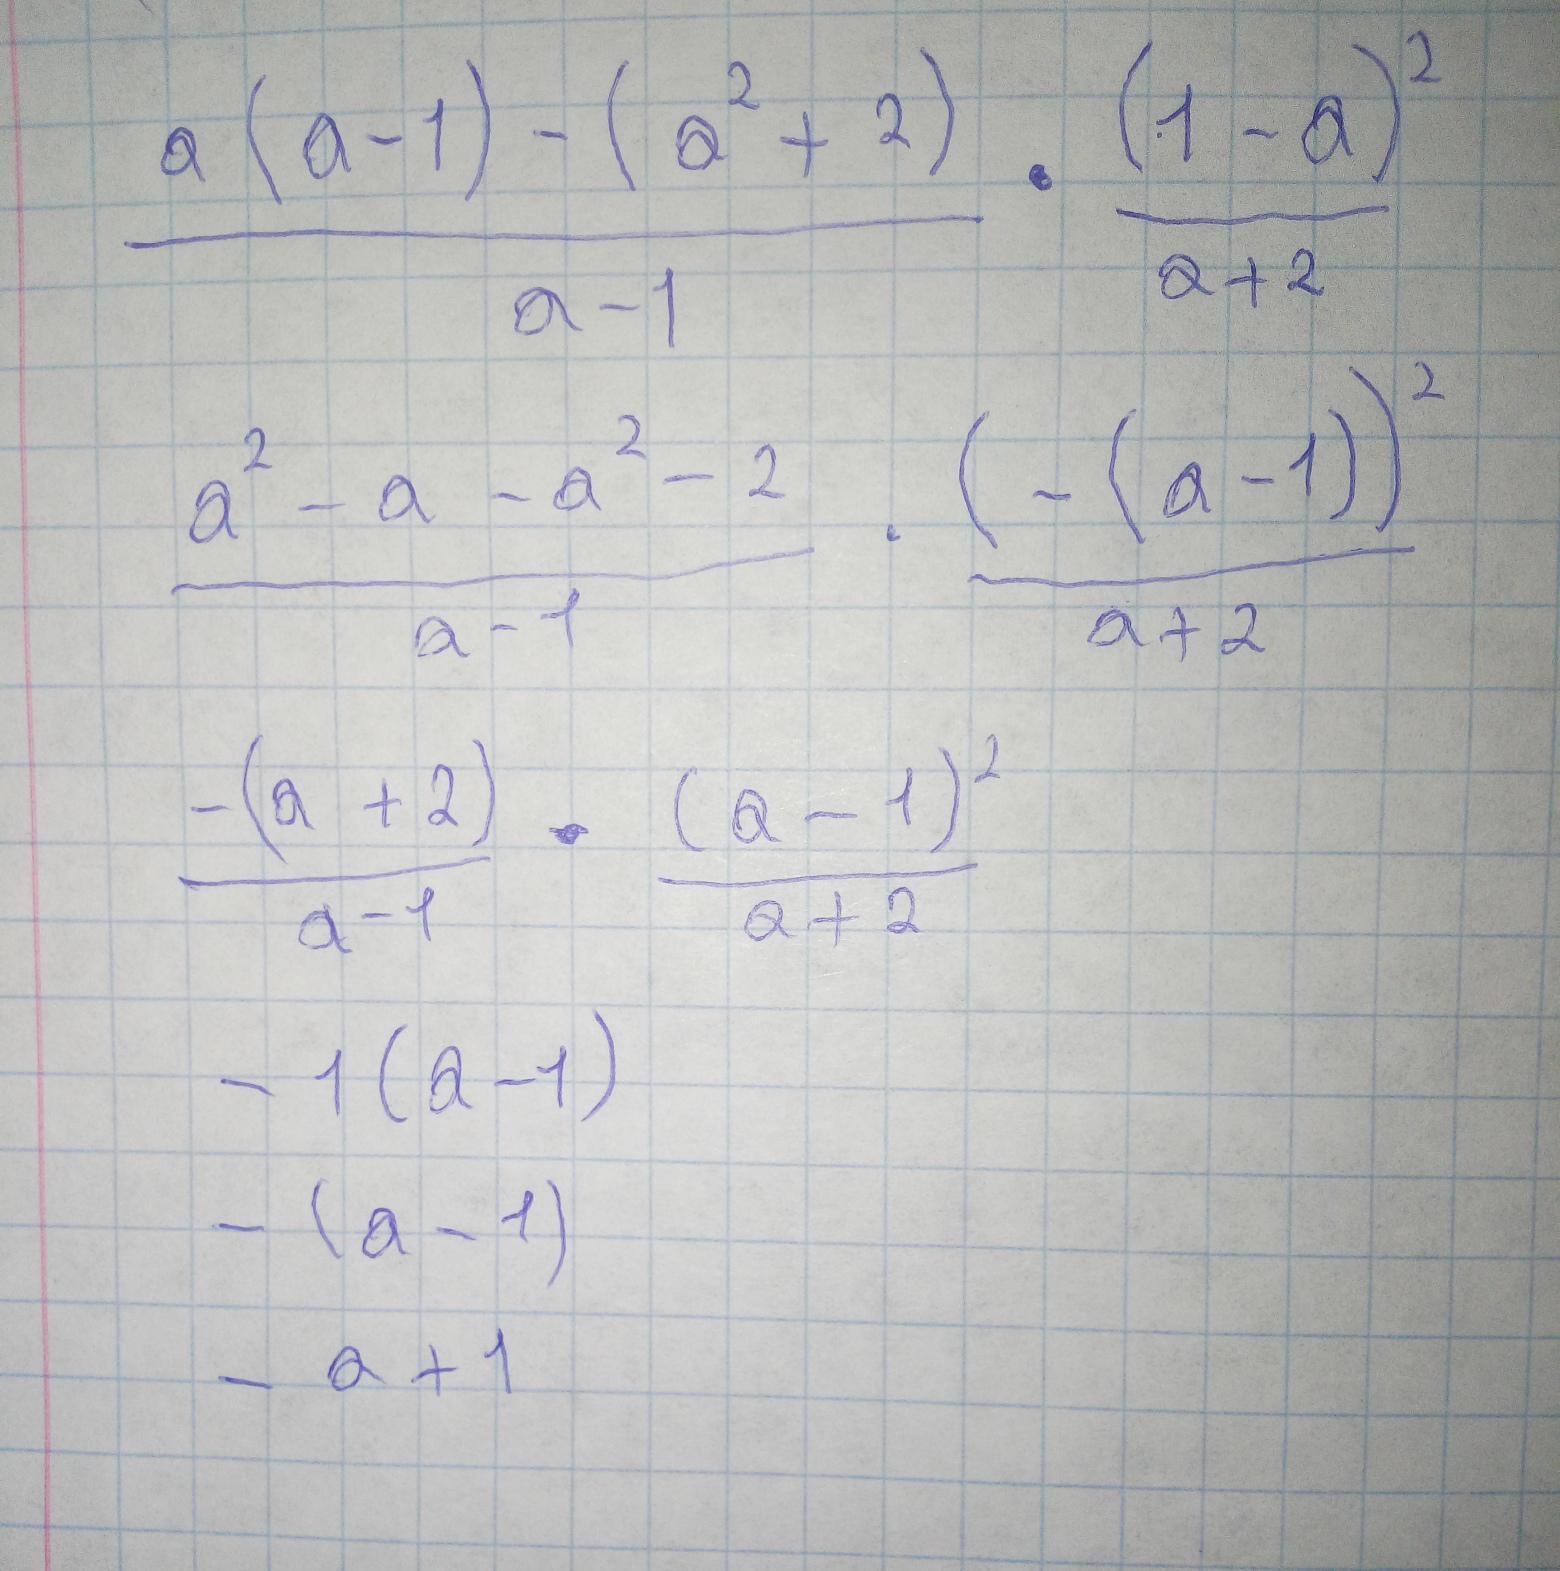 a(a-1)-(a²+2)/a-1 · (1-a)²/a+2
a²-a-a²-2/a-1 · (-(a-1))²/a+2
-(a+2)/a-1 · (a-1)²/a+2
-1(a-1)
-(a-1)
-a+1